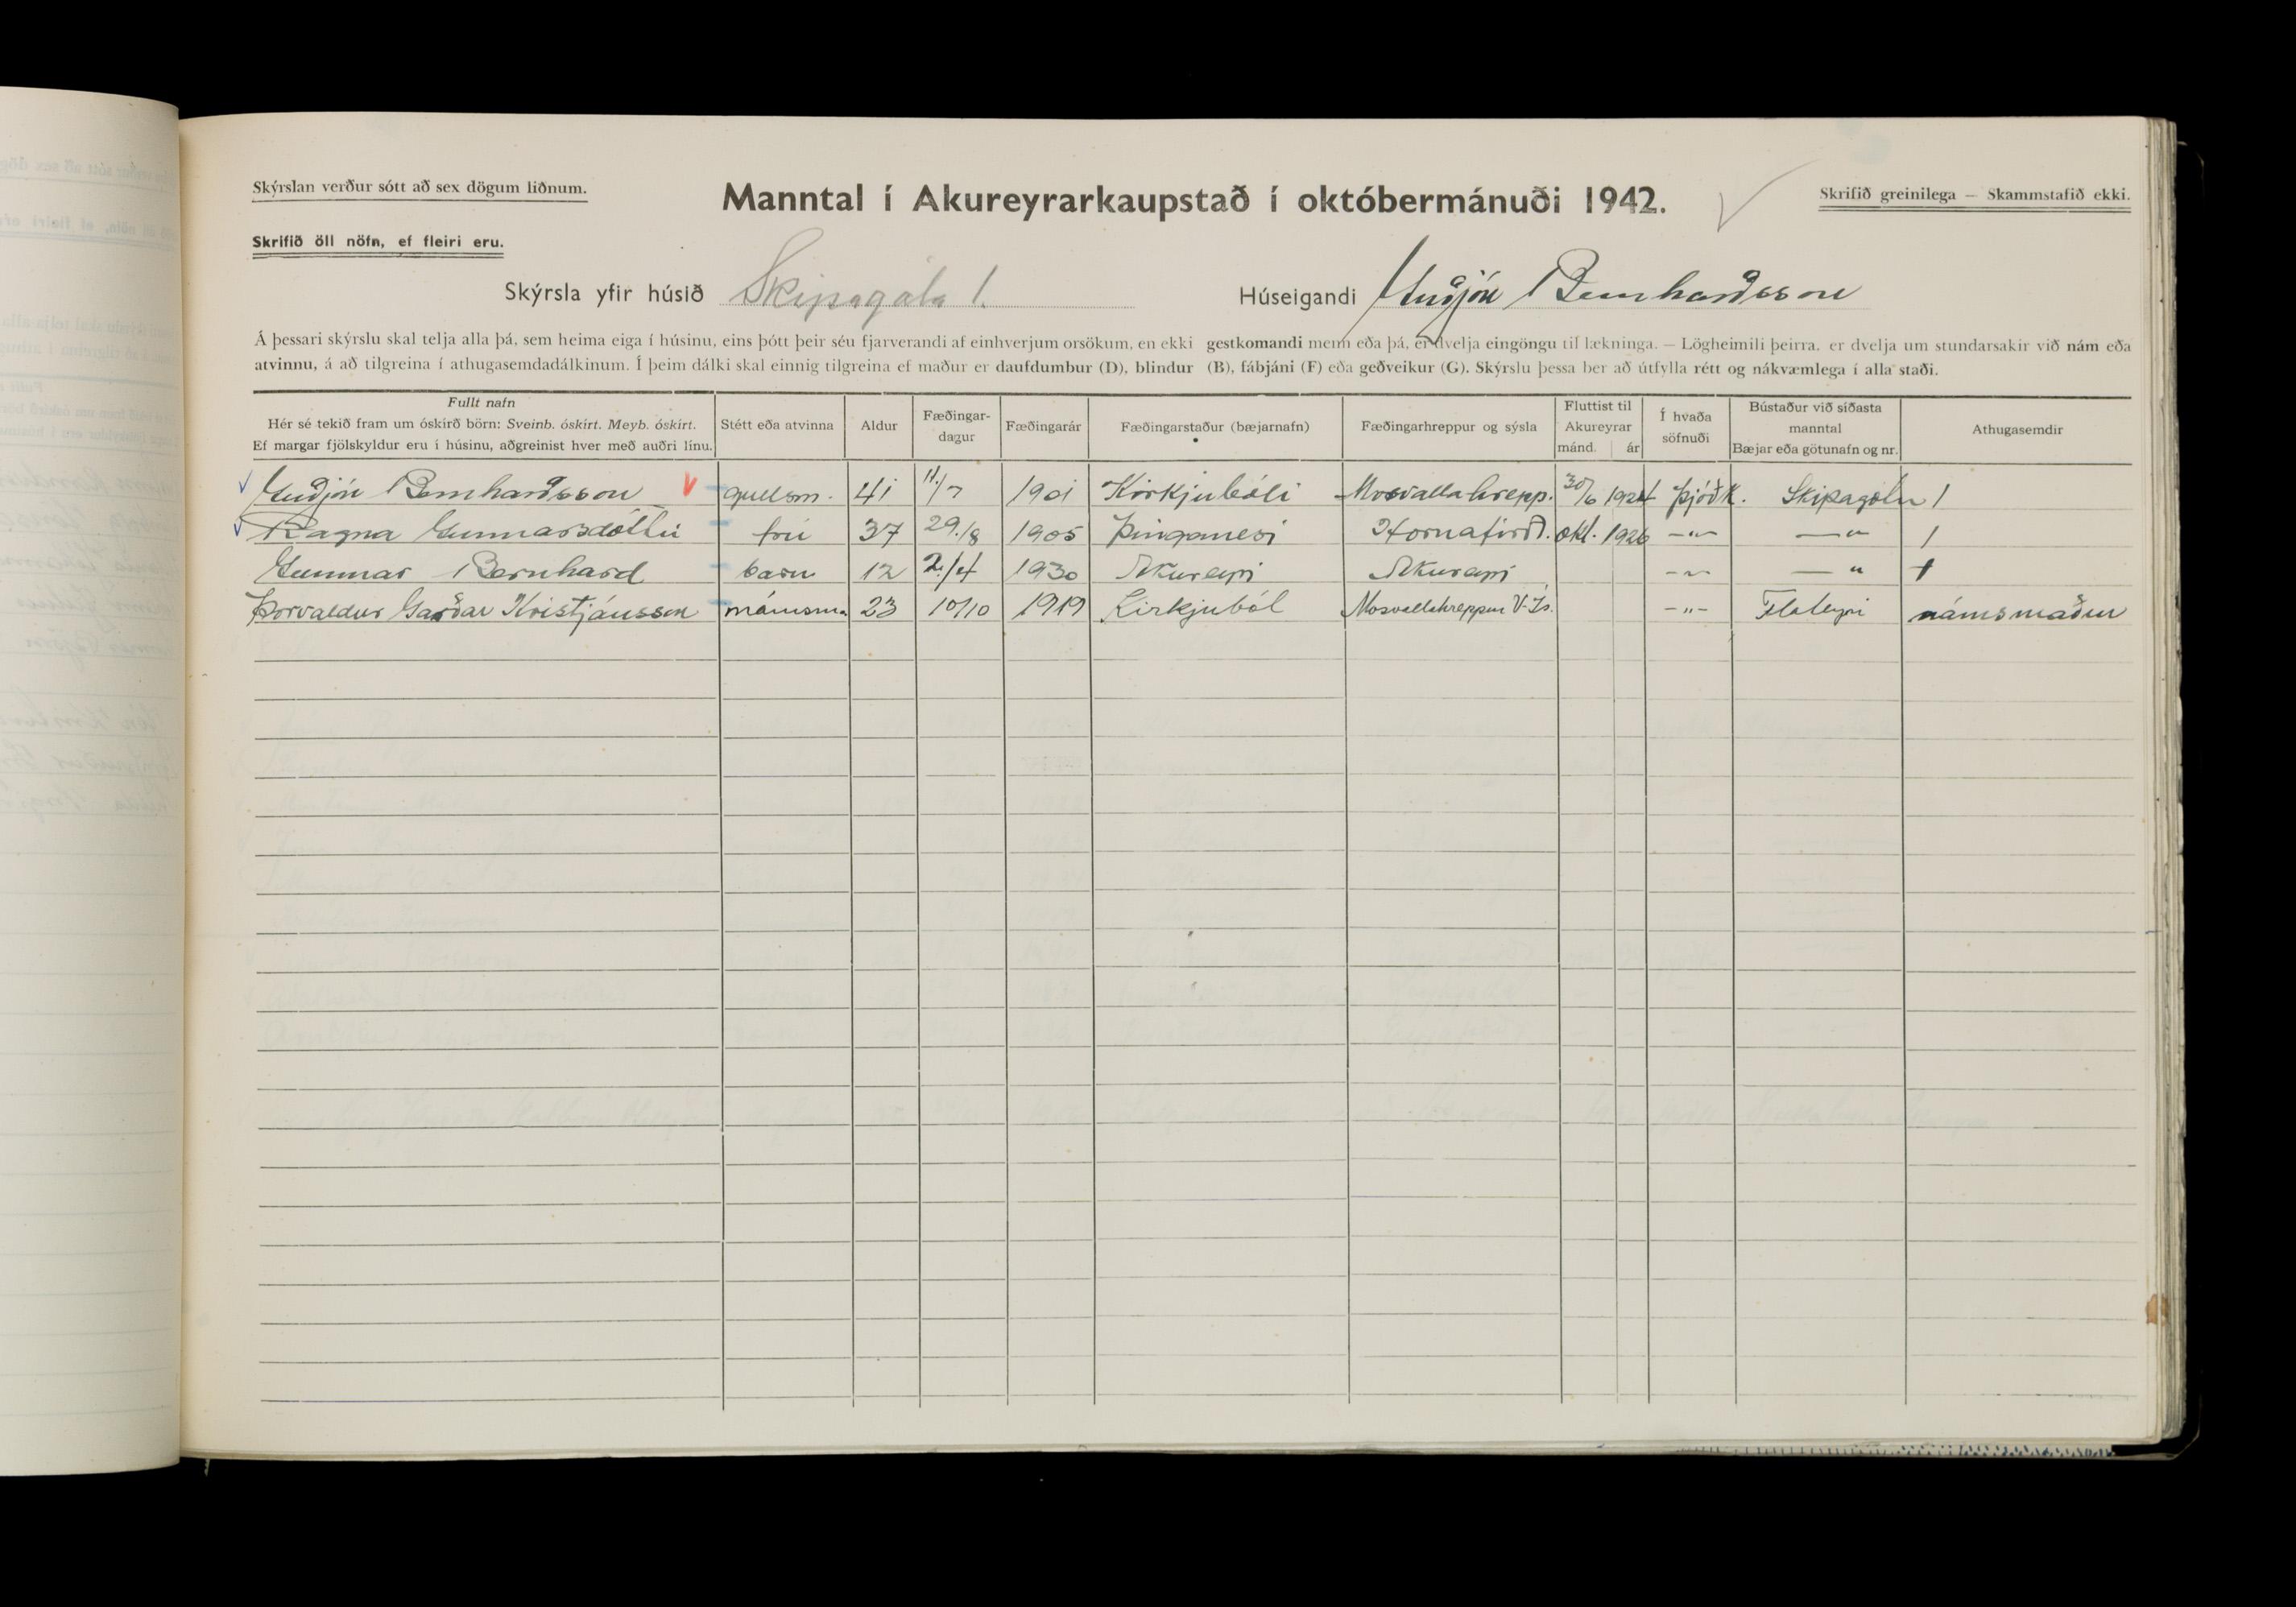 Skýrslan verður sótt að sex dögum liðnum.
Manntal í Akureyrarkaupstað í októbermánuði 1942.
Skrifið greinilega — Skammstafið ekki.
Skrifið öll nöfn, ef fleiri eru.
Skýrsla yfir húsið Skipagata 1.
Húseigandi Guðjón Bernharðsson
Á þessari skýrslu skal telja alla þá, sem heima eiga í húsinu, eins þótt þeir séu fjarverandi af einhverjum orsökum, en ekki gestkomandi menn eða þá, er dvelja eingöngu til lækninga. — Lögheimili þeirra, er dvelja um stundarsakir við nám eða
atvinnu, á að tilgreina í athugasemdadálkinum. Í þeim dálki skal einnig tilgreina ef maður er daufdumbur (D), blindur (B), fábjáni (F) eða geðveikur (G). Skýrslu þessa ber að útfylla rétt og nákvæmlega í alla staði.
Fullt nafn
Hér sé tekið fram um óskírð börn: Sveinb. óskírt. Meyb. óskírt.
Ef margar fjölskyldur eru í húsinu, aðgreinist hver með auðri línu.
Stétt eða atvinna
Aldur
Fæðingar-
dagur
Fæðingarár
Fæðingarstaður (bæjarnafn)
Fæðingarhreppur og sýsla
Fluttist til
Akureyrar
mánd. ár
Í hvaða
söfnuði
Bústaður við síðasta
manntal
Bæjar eða götunafn og nr.
Athugasemdir
Guðjón Bernharðsson gullsm. 41 11/7 1901 Kirkjubóli Mosvallahrepp. 30/6 1924 Þjóðk. Skipagötu 1
Ragna Gunnarsdóttir frú 37 29./8 1905 Þinganesi Hornafirð. okt. 1926 —„— —„ 1
Gunnar Bernhard barn 12 2./4 1930 Akureyri Akureyri —„— —„ 1
Þorvaldur Garðar Kristjánsson námsm. 23 10/10 1919 Kirkjuból Mosvallahreppur V-Ís. —„— Flateyri námsmaður